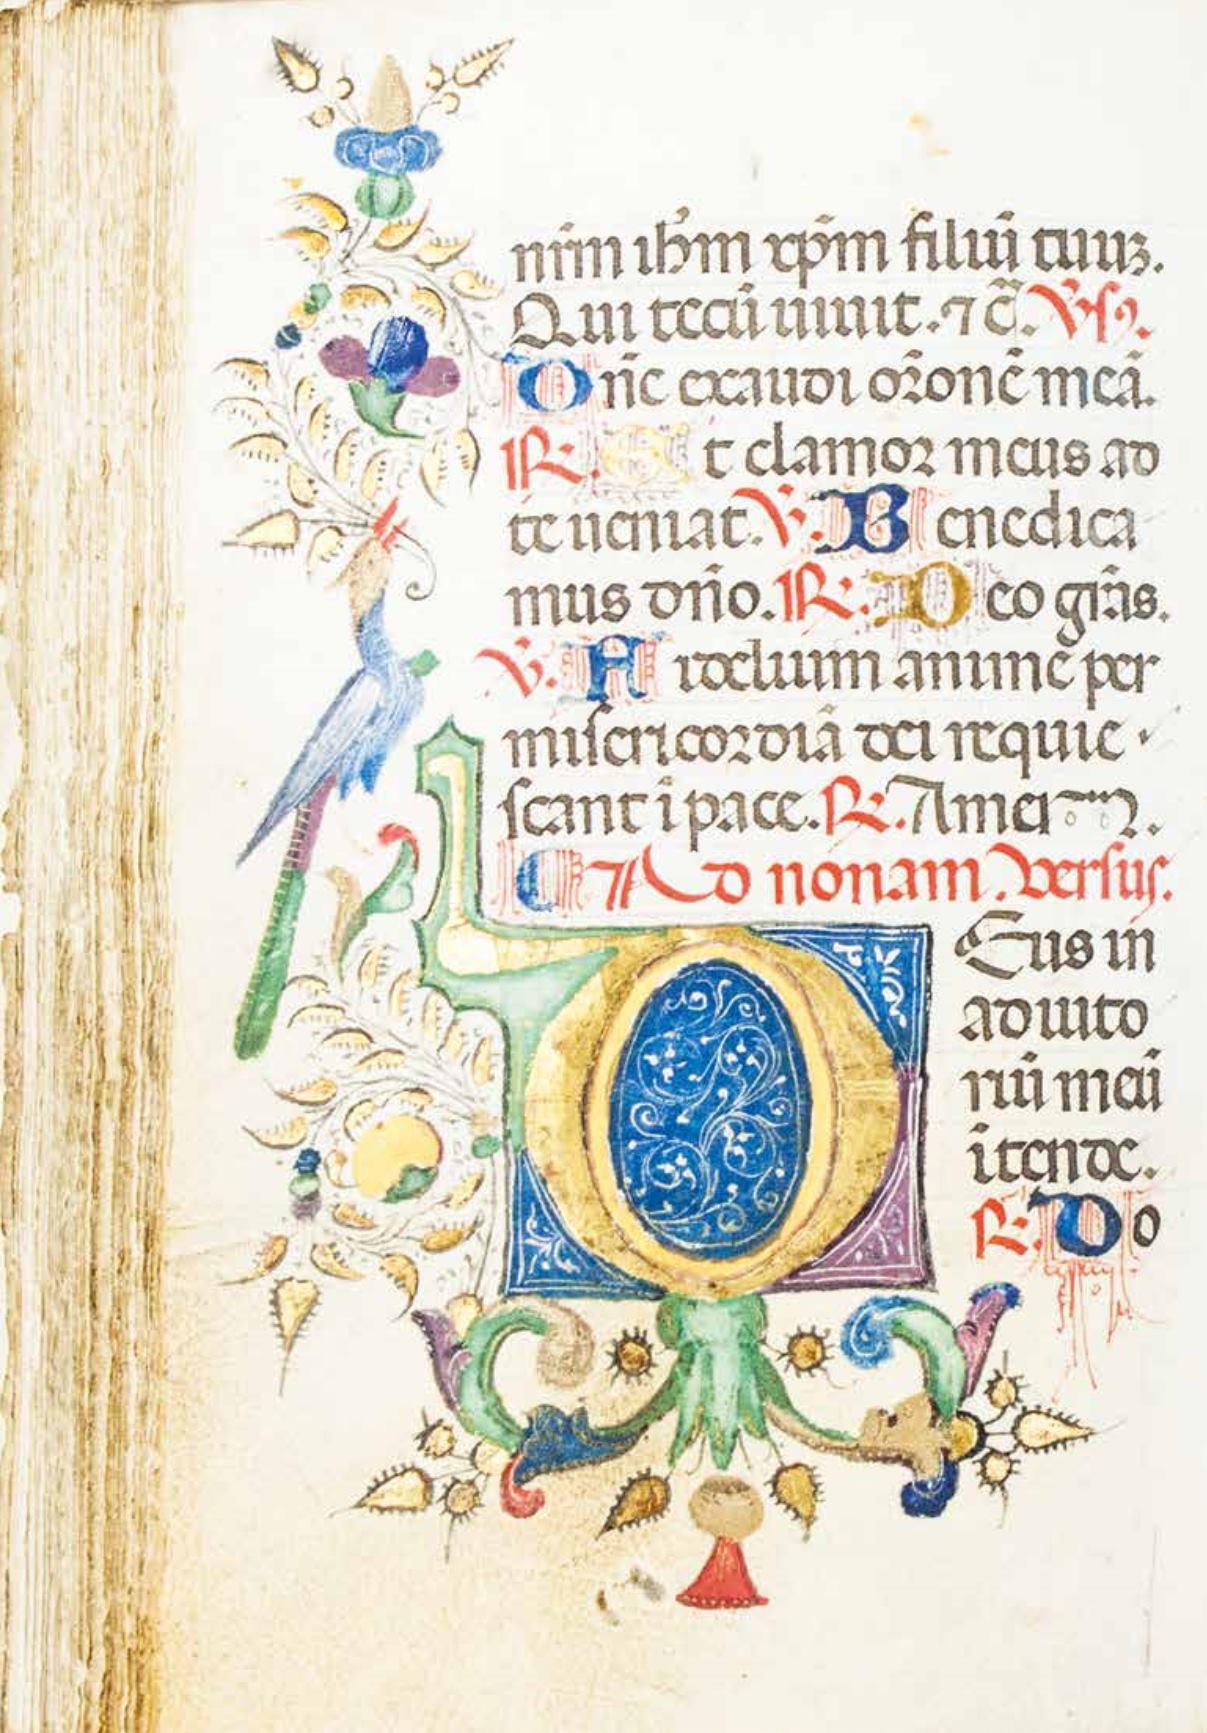 nr̄m ih̄m xp̄m filiū tuuꝫ.
Qui tecū uiuit. ⁊ c̄. Vs̄ꝯ.
Dn̄e exaudi or̄onē meā.
℟. Et clamor meus ad
te ueniat. ℣. Benedica
mus dn̄o. ℟. Deo gr̄as.
℣. Fidelium anime per
misericordiā dei requie
scant ī pace. ℟. Amen.
Ad nonam. versus.
Deus in
adiuto
riū meū
ītende.
℟. Do